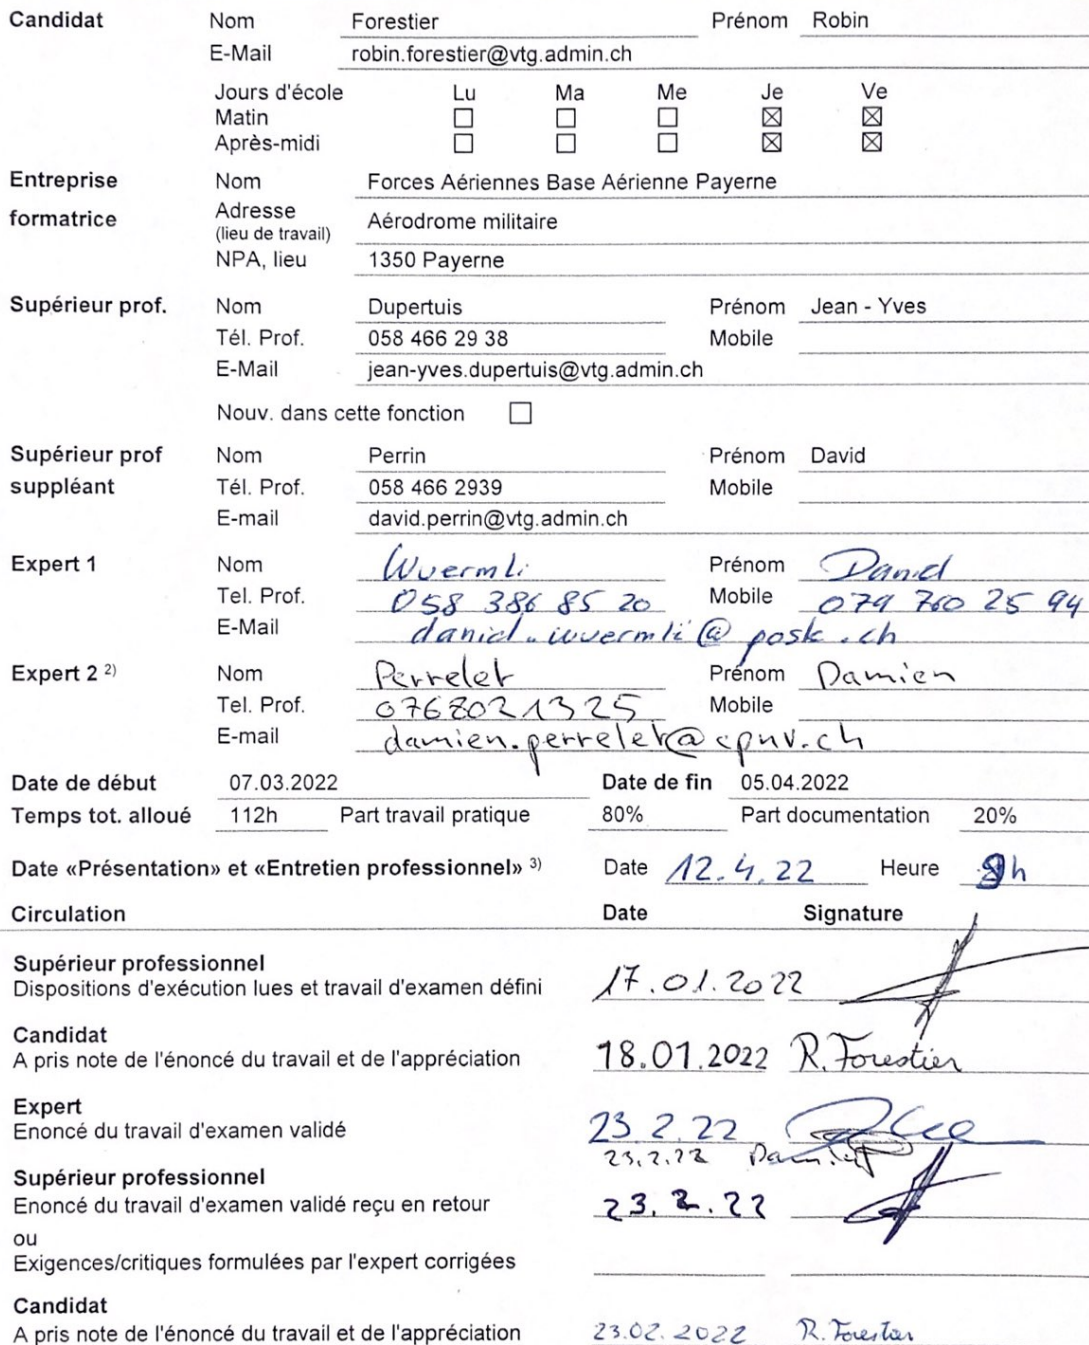 Candidat Nom Forestier Prénom Robin
E-Mail robin.forestier@vtg.admin.ch
Jours d'école Lu Ma Me Je Ve
Matin ☐ ☐ ☐ ☒ ☒
Après-midi ☐ ☐ ☐ ☒ ☒
Entreprise Nom Forces Aériennes Base Aérienne Payerne
formatrice Adresse Aérodrome militaire
(lieu de travail)
NPA, lieu 1350 Payerne
Supérieur prof. Nom Dupertuis Prénom Jean - Yves
Tél. Prof. 058 466 29 38 Mobile
E-Mail jean-yves.dupertuis@vtg.admin.ch
Nouv. dans cette fonction ☐
Supérieur prof Nom Perrin Prénom David
suppléant Tél. Prof. 058 466 2939 Mobile
E-mail david.perrin@vtg.admin.ch
Expert 1 Nom Wuermli Prénom Daniel
Tel. Prof. 058 386 85 20 Mobile 079 760 25 94
E-Mail daniel.wuermli@post.ch
Expert 2 2) Nom Perrelet Prénom Damien
Tel. Prof. 0768021325 Mobile
E-mail damien.perrelet@cpnv.ch
Date de début 07.03.2022 Date de fin 05.04.2022
Temps tot. alloué 112h Part travail pratique 80% Part documentation 20%
Date «Présentation» et «Entretien professionnel» 3) Date 12.4.22 Heure h
Circulation Date Signature
Supérieur professionnel
Dispositions d'exécution lues et travail d'examen défini 17.01.2022
Candidat
A pris note de l'énoncé du travail et de l'appréciation 18.01.2022 R. Forestier
Expert
Enoncé du travail d'examen validé 23.2.22
23.2.22
Supérieur professionnel
Enoncé du travail d'examen validé reçu en retour 23.2.22
ou
Exigences/critiques formulées par l'expert corrigées
Candidat
A pris note de l'énoncé du travail et de l'appréciation 23.02.2022 R. Forestier